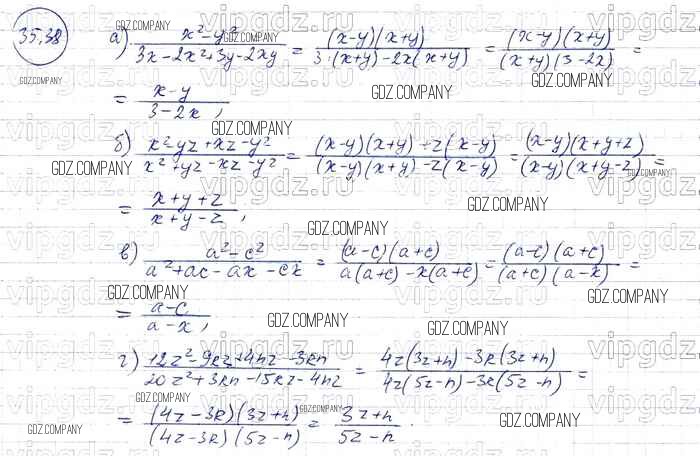 35.38
а) (x² - y²)/(3x - 2x² + 3y - 2xy) = ((x-y)(x+y))/(3(x+y) - 2x(x+y)) = ((x-y)(x+y))/((x+y)(3-2x)) =
= (x-y)/(3-2x),
б) (x² - yz + xz - y²)/(x² + yz - xz - y²) = ((x-y)(x+y) + z(x-y))/((x-y)(x+y) - z(x-y)) = ((x-y)(x+y+z))/((x-y)(x+y-z)) =
= (x+y+z)/(x+y-z),
в) (a² - c²)/(a² + ac - ax - cx) = ((a-c)(a+c))/(a(a+c) - x(a+c)) = ((a-c)(a+c))/((a+c)(a-x)) =
= (a-c)/(a-x),
г) (12z² - 9kz + 4nz - 3kn)/(20z² + 3kn - 15kz - 4nz) = (4z(3z+n) - 3k(3z+n))/(4z(5z-n) - 3k(5z-n)) =
= ((4z-3k)(3z+n))/((4z-3k)(5z-n)) = (3z+n)/(5z-n).
GDZ.COMPANY
vipgdz.ru